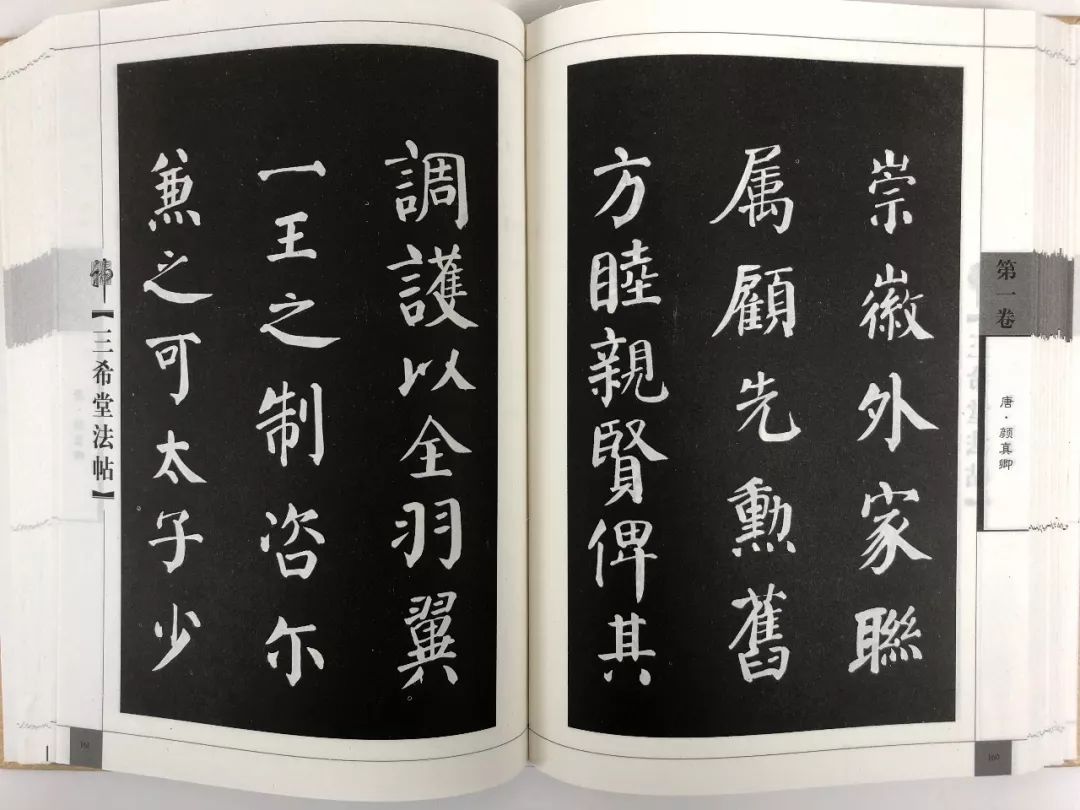 崇徽外家聯
属顧先勲舊
方睦親賢俾其
調護以全羽翼
一王之制咨尔
兼之可太子少
第一卷
唐·颜真卿
160
【三希堂法帖】
161